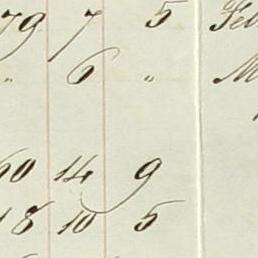 79 7 5 Feb
" 6 " M
60 14 9
18 10 5